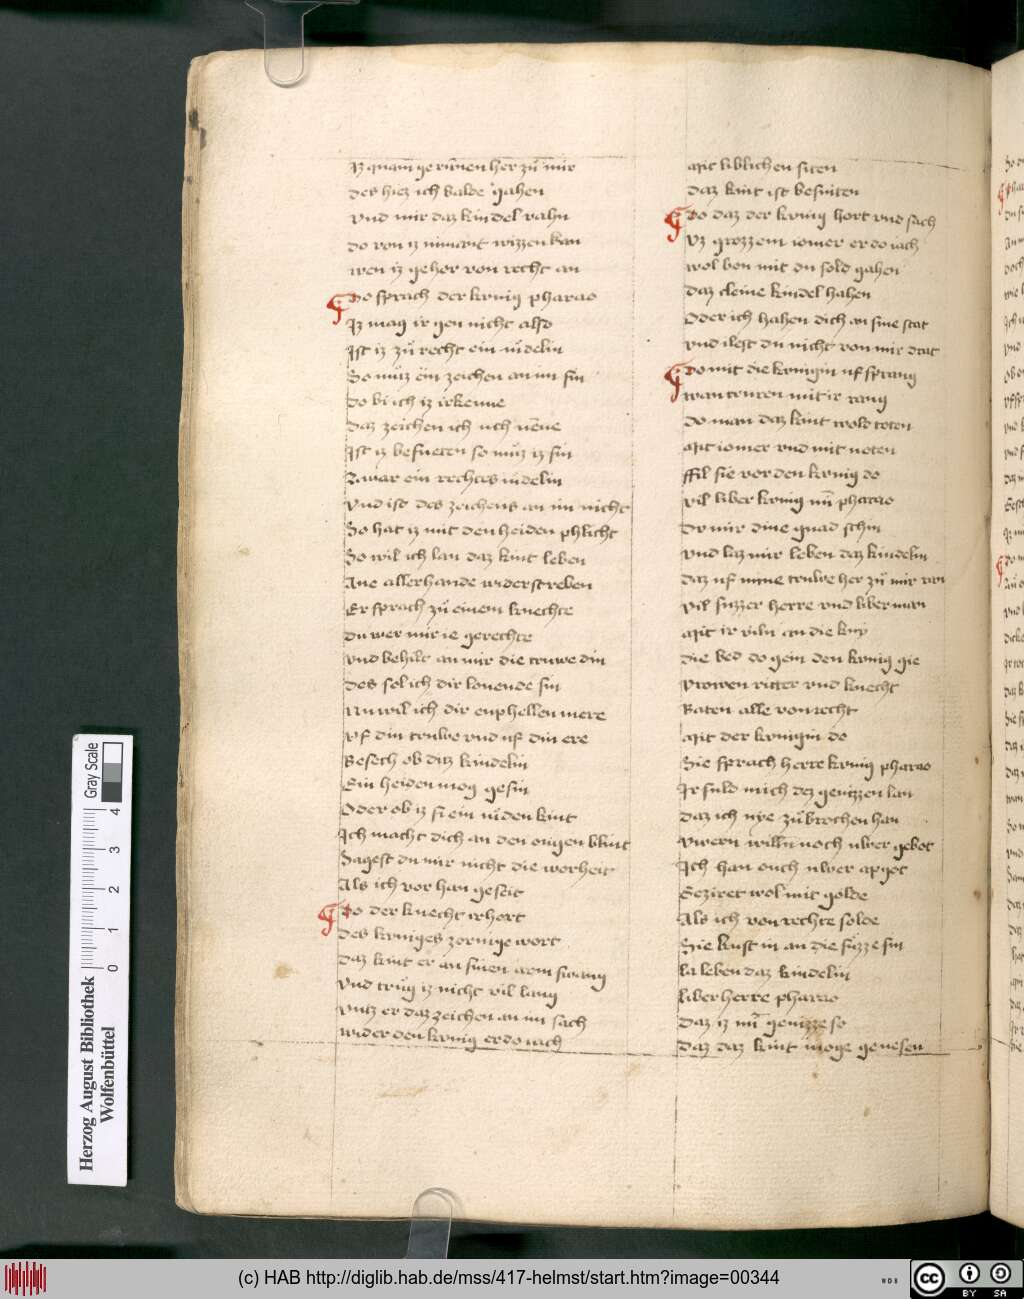 Iz quam̄ ge rūnen her zů mir
Des hiez ich balde gahen
Vnd mir daz kindel vahn
Do von iz nimant wizzen kan
Wen iz gehor von recht an
Do sprach der kvnig pharao
Iz mag ir gen nicht also
Ist iz zů recht ein iůdelin
So můz ein zeichen an im sin
Do bi ich iz irkenne
Daz zeichen ich uch nēne
Ist iz besneten so můz iz sin
Zwar ein rechtes iůdelin
Vnd ist des zeichens an im nicht
So hat iz mit den heiden phlicht
So wil ich lan daz kint leben
Ane allerhande widerstreben
Er sprach zů einem knechte
Du wer mir ie gerechte
Vnd behilt an mir die truwe din
Des sol ich dir lonende sin
Nu wil ich dir enphellen mere
Vf din truwe vnd uf din ere
Besech ob diz kindelin
Ein heiden mog gesin
Oder ob iz si ein iůden kint
Ich macht dich an den ougen blint
Sagest du mir nicht die worheit
Als ich vor han geseit
Do der knecht irhort
Des kvniges zornige wort
Daz kint er an sinen arm swang
Vnd trůg iz nicht vil lang
Vntz er daz zeichen an im sach
Wider den kvnig er do iach
Mit liblichen siten
Daz kint ist besniten
Do daz der kvnig hort vnd sach
Vz grozzem iomer er do iach
Wol von mit du sold gahen
Daz cleine kindel hahen
Oder ich hahen dich an sine stat
Vnd ilest du nicht von mir drat
Do mit die kvnigin uf sprang
Wan truren mit ir rang
Do man daz kint wold toten
Mit iomer vnd mit noten
Ffil sie vor den kvnig do
Vil liber kvnig mī pharao
Dv mir dine gnad schin
Vnd laz mir leben daz kindelin
Daz uf mine truwe her zů mir ran
Vil suzzer herre vnd liber man
Mit ir viln an die kny
Die bed do gein den kvnig gie
Vrowen ritter vnd knecht
Baten alle von recht
Mit der kvnigin do
Sie sprach herre kvnig pharao
Ir suld mich dez genizzen lan
Daz ich nye zůbrochen han
Vwern willn noch uwer gebot
Ich han ouch uwer apgot
Geziret wol mit golde
Als ich von rechte solde
Sie kust in an die fůzze sin
La leben daz kindelin
Liber herre pharao
Daz iz mī genizze so
Daz daz kint moge genesen
Herzog August Bibliothek
Wolfenbüttel
Gray Scale
0 1 2 3 4
(c) HAB http://diglib.hab.de/mss/417-helmst/start.htm?image=00344
WDB
cc
BY SA